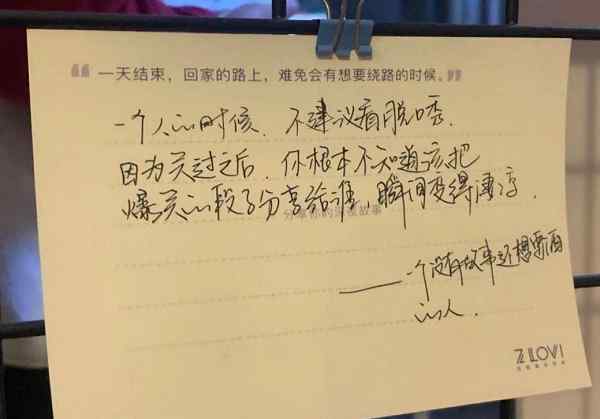 “一天结束，回家的路上，难免会有想要绕路的时候。”
一个人的时候、不建议看脱口秀.
因为笑过之后、你根本不知道该把
爆笑的段子分享给谁,瞬间变得凄凉.
分享你的深夜故事
——一个没有故事还想需酒
的人.
ZLOVI